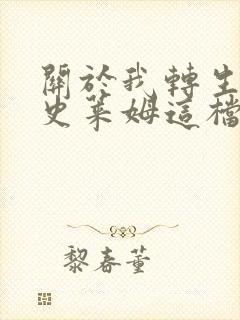 關於我轉生
史萊姆這檔
黎春董